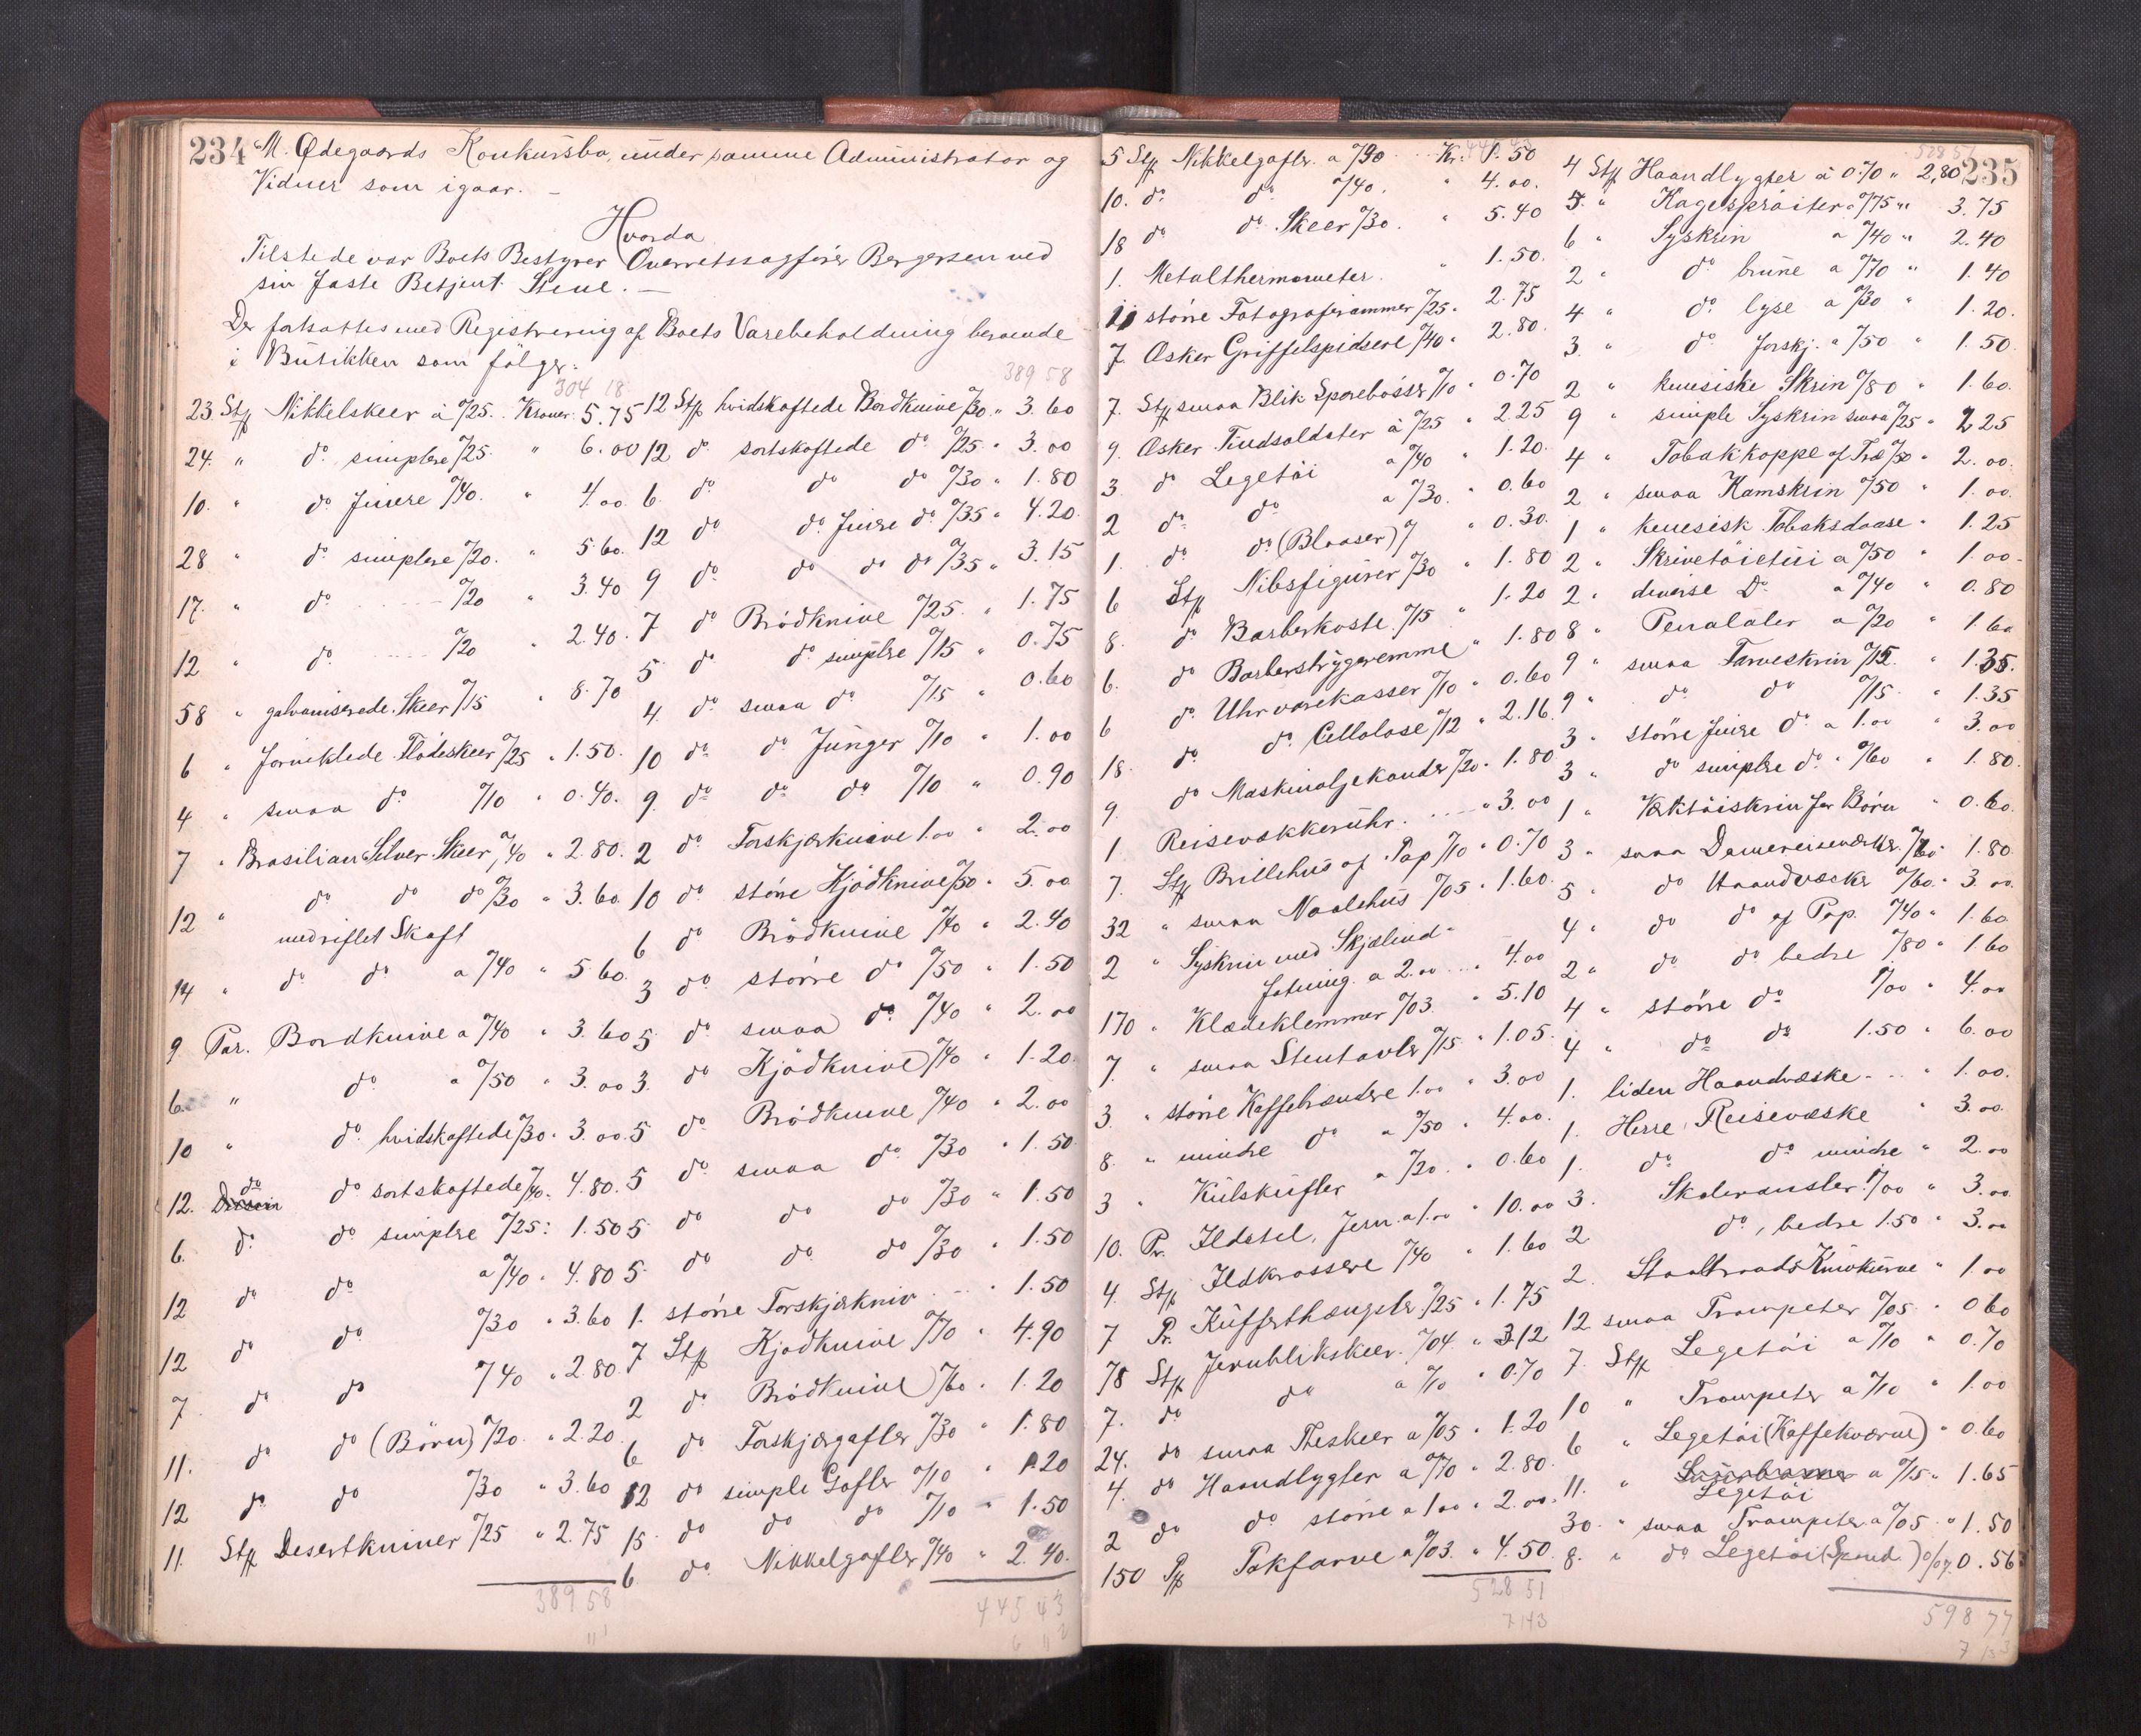 234
M. Ødegaards Konkursbo, under samme Administrator og
Vidner som igaar. —
Hvorda
Tilstede var Boets Bestyrer Overretssagfører Bergersen ved
sin faste Betjent Stene. —
Der fortsattes med Registrering af Boets Varebeholdning beroende
i Butikken som følger:
304 18
23 Stk Nikkelskeer à 0/25. Kroner 5.75
24. " do simplere 0/25. " 6.00
10. " do finere 0/40. " 4.00
28 " do simplere 0/20. " 5.60
17. " do 0/20 " 3.40
12 " do 0/20 " 2.40.
58 " galvaniserede Skeer 0/15 " 8.70
6 " forniklede Flødeskeer 0/25 " 1.50.
4 " smaa do 0/10 " 0.40.
7 " Brasilian Silver Skeer 0/40 " 2.80.
12 " do do do 0/30 " 3.60
med riflet Skaft
14 " do do a 0/40 " 5.60.
9 Par. Bordknive a 0/40 " 3.60
6. " do " 0/50 " 3.00
10 " do hvidskaftede 0/30 " 3.00.
12. do do sortskaftede 0/40 " 4.80.
6. do do simplere 0/25 : 1.50
12 do do a 0/40 " 4.80
12 do do 0/30 " 3.60
7 do do 0/40 " 2.80.
11. do do (Børn) 0/20 " 2.20.
12 do do 0/30 " 3.60
11. Stk Desertkniver 0/25 " 2.75
389 58
389 58
12 Stk hvidskaftede Bordknive 0/30 " 3.60
12 do sortskaftede do 0/25 " 3.00
6. do do do 0/30 " 1.80
12 do do finere do 0/35 " 4.20.
9 do do do do 0/35 " 3.15
7 do Brødknive 0/25 " 1.75
5 do do simplere 0/15 " 0.75
4. do smaa do 0/15 " 0.60
10 do do Junger 0/10 " 1.00
9. do do do 0/10 " 0.90
2 do Forskjærknive 1.00 " 2.00
10 do større Kjødknive 0/50 " 5.00
6 do Brødknive 0/40 " 2.40
3 do større do 0/50 " 1.50
5 do smaa do 0/40 " 2.00
3. do Kjødknive 0/40 " 1.20
5 do Brødknive 0/40 " 2.00
5 do smaa do 0/30 " 1.50
5 do do do 0/30 " 1.50
5 do do do 0/30 " 1.50
1. større Forskjærkniv " 1.50
7 Stk Kjødknive 0/70 " 4.90
2 do Brødknive 0/60 " 1.20
6 do Forskjærgafler 0/30 " 1.80
12 do simple Gafler 0/10 " 1.20
15 do do do 0/10 " 1.50
6 do Nikkelgafler 0/40 " 2.40.
445 43
5 Stk Nikkelgafler a 0/30 Kr. 1.50
10. do do 0/40. " 4.00.
18 do do Skeer 0/30. " 5.40
1. Metalthermometer. " 1.50.
11 større Fotograframmer 0/25 " 2.75
7. Æsker Griffelspidsere 0/40 " 2.80.
7. Stk smaa Blik Sparebøsser 0/10 " 0.70
9. Æsker Tindsoldater à 0/25 " 2.25
3. do Legetøi a 0/40 " 1.20.
2 do do a 0/30. " 0.60
1. do do (Blaaser) " 0.30.
6 Stk Nibsfigurer 0/30 " 1.80
8. do Barberkoste. 0/15 " 1.20
6. do Barberstrygeremme " 1.80
6 do Uhrværkasser 0/10 " 0.60
18. do do Cellolose 0/12 " 2.16.
9. do Maskinoljekander 0/20 " 1.80
1 Reisevækkeruhr. " 3.00
7. Stk Brillehus af Pap 0/10 " 0.70
32 " smaa Naalehus 0/05 " 1.60.
2 " Syskrin med Skjælind-
fatning a 2.00 " 4.00
170 " Klædeklemmer 0/03. " 5.10
7. " smaa Stentavler 0/15 " 1.05.
3. " større Kaffebrændere 1.00 " 3.00
8. " mindre do a 0/50 " 4.00.
3 " Kulskufler a 0/20 " 0.60
10. Pr. Ildstel, Jern a 1.00 " 10.00
4. Stk Ildkrassere 0/40 " 1.60
7 Pr. Kufferthængsler 0/25 " 1.75
78 Stk Jernblikskeer. 0/04 " 3.12
7. do do a 0/10 " 0.70
24. do smaa Theskeer a 0/05 " 1.20
4. do Haandlygter a 0/70 " 2.80.
2 do do større a 1.00 " 2.00.
150 Pk Pakfarve a 0/03. " 4.50
528 51
235
4 Stk Haandlygter à 0.70 " 2,80
5. " Kagesprøiter a 0/75 " 3.75
6 " Syskrin a 0/40 " 2.40
2 " do brune a 0/70 " 1.40
4 " do lyse a 0/30 " 1.20.
3. " do forskj. a 0/50 " 1.50
2 " kinesiske Skrin 0/80 " 1.60.
9 " simple Syskrin smaa 0/25 " 2.25
4 " Tobakkoppe af Træ 0/50 " 2.00.
2 " smaa Kamskrin 0/50 " 1.00.
1 " kinesisk Tobaksdaase " 1.25
2 " Skrivetøietui a 0/50 " 1.00-
2 " diverse Do a 0/40 " 0.80
8 " Penalaler a 0/20 " 1.60
9 " smaa Farveskrin 0/15. " 1.35.
9 " do do 0/15 " 1.35
3 " større finere do a 1.00 " 3.00
3 " do simplere do " 0/60 " 1.80.
1 " Værktøiskrin for Børn " 0.60.
3 " smaa Damereisevæsker 0/60 " 1.80
5 " do Haandvæsker 0/60 " 3.00.
4 " do do af Pap. 0/40 " 1.60
2 " do do bedre 0/80 " 1.60
4 " større do 1/00 " 4.00
4 " do do 1.50 " 6.00
1. liden Haandvæske " 1.00.
1. Herre Reisevæske " 3.00.
1. do do mindre " 2.00
3. Skoleransler 1/00 " 3.00.
2. do, bedre 1.50 " 3.00
2. Staaltraads Knivkurve " 1.00
12 smaa Trompeter 0/05 " 0.60
7. Stk Legetøi a 0/10 " 0.70
10 " Trompeter a 0/10 " 1.00
6 " Legetøi (Kaffekværne) " 0.60
11. " Legetøi a 0/15 " 1.65
30. " smaa Trompeter a 0/05 " 1.50
8. " do Legetøi 0/07 0.56
598 77